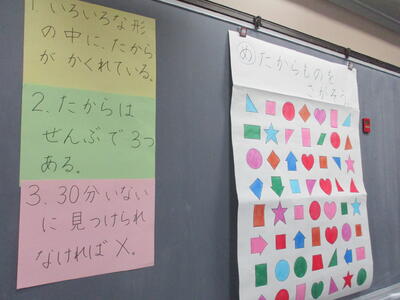 1. いろいろな形
の中に、たから
が かくれている。
2. たからは
せんぶで 3つ
ある。
3. 30分いない
に 見つけられ
なければ ×。
め たからものを
さがそう!